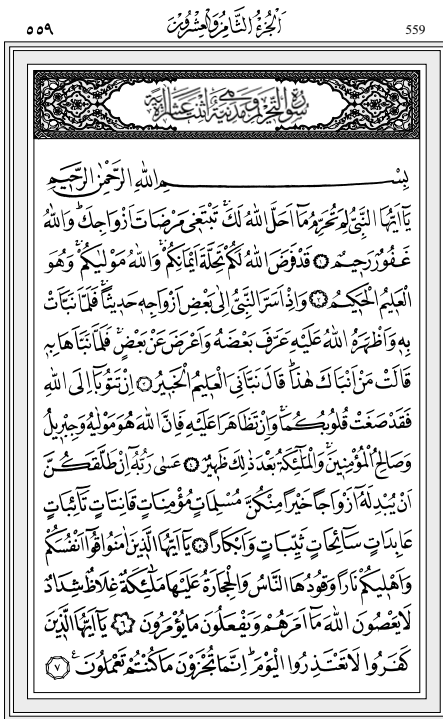 ٥٥٩ اَلْجُزْءُ الثَّامِنُ وَالْعِشْرُونَ 559
سُورَةُ التَّحْرِيمِ وَهِيَ مَدَنِيَّةٌ اثْنَتَا عَشْرَةَ اٰيَةً
بِسْمِ اللّٰهِ الرَّحْمٰنِ الرَّحِيمِ
يَٓا اَيُّهَا النَّبِيُّ لِمَ تُحَرِّمُ مَٓا اَحَلَّ اللّٰهُ لَكَۚ تَبْتَغ۪ي مَرْضَاتَ اَزْوَاجِكَۜ وَاللّٰهُ
غَفُورٌ رَح۪يمٌ ﴿١﴾ قَدْ فَرَضَ اللّٰهُ لَكُمْ تَحِلَّةَ اَيْمَانِكُمْۚ وَاللّٰهُ مَوْلٰيكُمْۚ وَهُوَ
الْعَل۪يمُ الْحَك۪يمُ ﴿٢﴾ وَاِذْ اَسَرَّ النَّبِيُّ اِلٰى بَعْضِ اَزْوَاجِه۪ حَد۪يثًاۚ فَلَمَّا نَبَّاَتْ
بِه۪ وَاَظْهَرَهُ اللّٰهُ عَلَيْهِ عَرَّفَ بَعْضَهُ وَاَعْرَضَ عَنْ بَعْضٍۚ فَلَمَّا نَبَّاَهَا بِه۪
قَالَتْ مَنْ اَنْبَاَكَ هٰذَاۜ قَالَ نَبَّاَنِيَ الْعَل۪يمُ الْخَب۪يرُ ﴿٣﴾ اِنْ تَتُوبَٓا اِلَى اللّٰهِ
فَقَدْ صَغَتْ قُلُوبُكُمَاۚ وَاِنْ تَظَاهَرَا عَلَيْهِ فَاِنَّ اللّٰهَ هُوَ مَوْلٰيهُ وَجِبْر۪يلُ
وَصَالِحُ الْمُؤْمِن۪ينَۚ وَالْمَلٰٓئِكَةُ بَعْدَ ذٰلِكَ ظَه۪يرٌ ﴿٤﴾ عَسٰى رَبُّهُٓ اِنْ طَلَّقَكُنَّ
اَنْ يُبْدِلَهُٓ اَزْوَاجًا خَيْرًا مِنْكُنَّ مُسْلِمَاتٍ مُؤْمِنَاتٍ قَانِتَاتٍ تَٓائِبَاتٍ
عَابِدَاتٍ سَٓائِحَاتٍ ثَيِّبَاتٍ وَاَبْكَارًا ﴿٥﴾ يَٓا اَيُّهَا الَّذ۪ينَ اٰمَنُوا قُٓوا اَنْفُسَكُمْ
وَاَهْل۪يكُمْ نَارًا وَقُودُهَا النَّاسُ وَالْحِجَارَةُ عَلَيْهَا مَلٰٓئِكَةٌ غِلَاظٌ شِدَادٌ
لَا يَعْصُونَ اللّٰهَ مَٓا اَمَرَهُمْ وَيَفْعَلُونَ مَا يُؤْمَرُونَ ﴿٦﴾ يَٓا اَيُّهَا الَّذ۪ينَ
كَفَرُوا لَا تَعْتَذِرُوا الْيَوْمَۜ اِنَّمَا تُجْزَوْنَ مَا كُنْتُمْ تَعْمَلُونَ۟ ﴿٧﴾